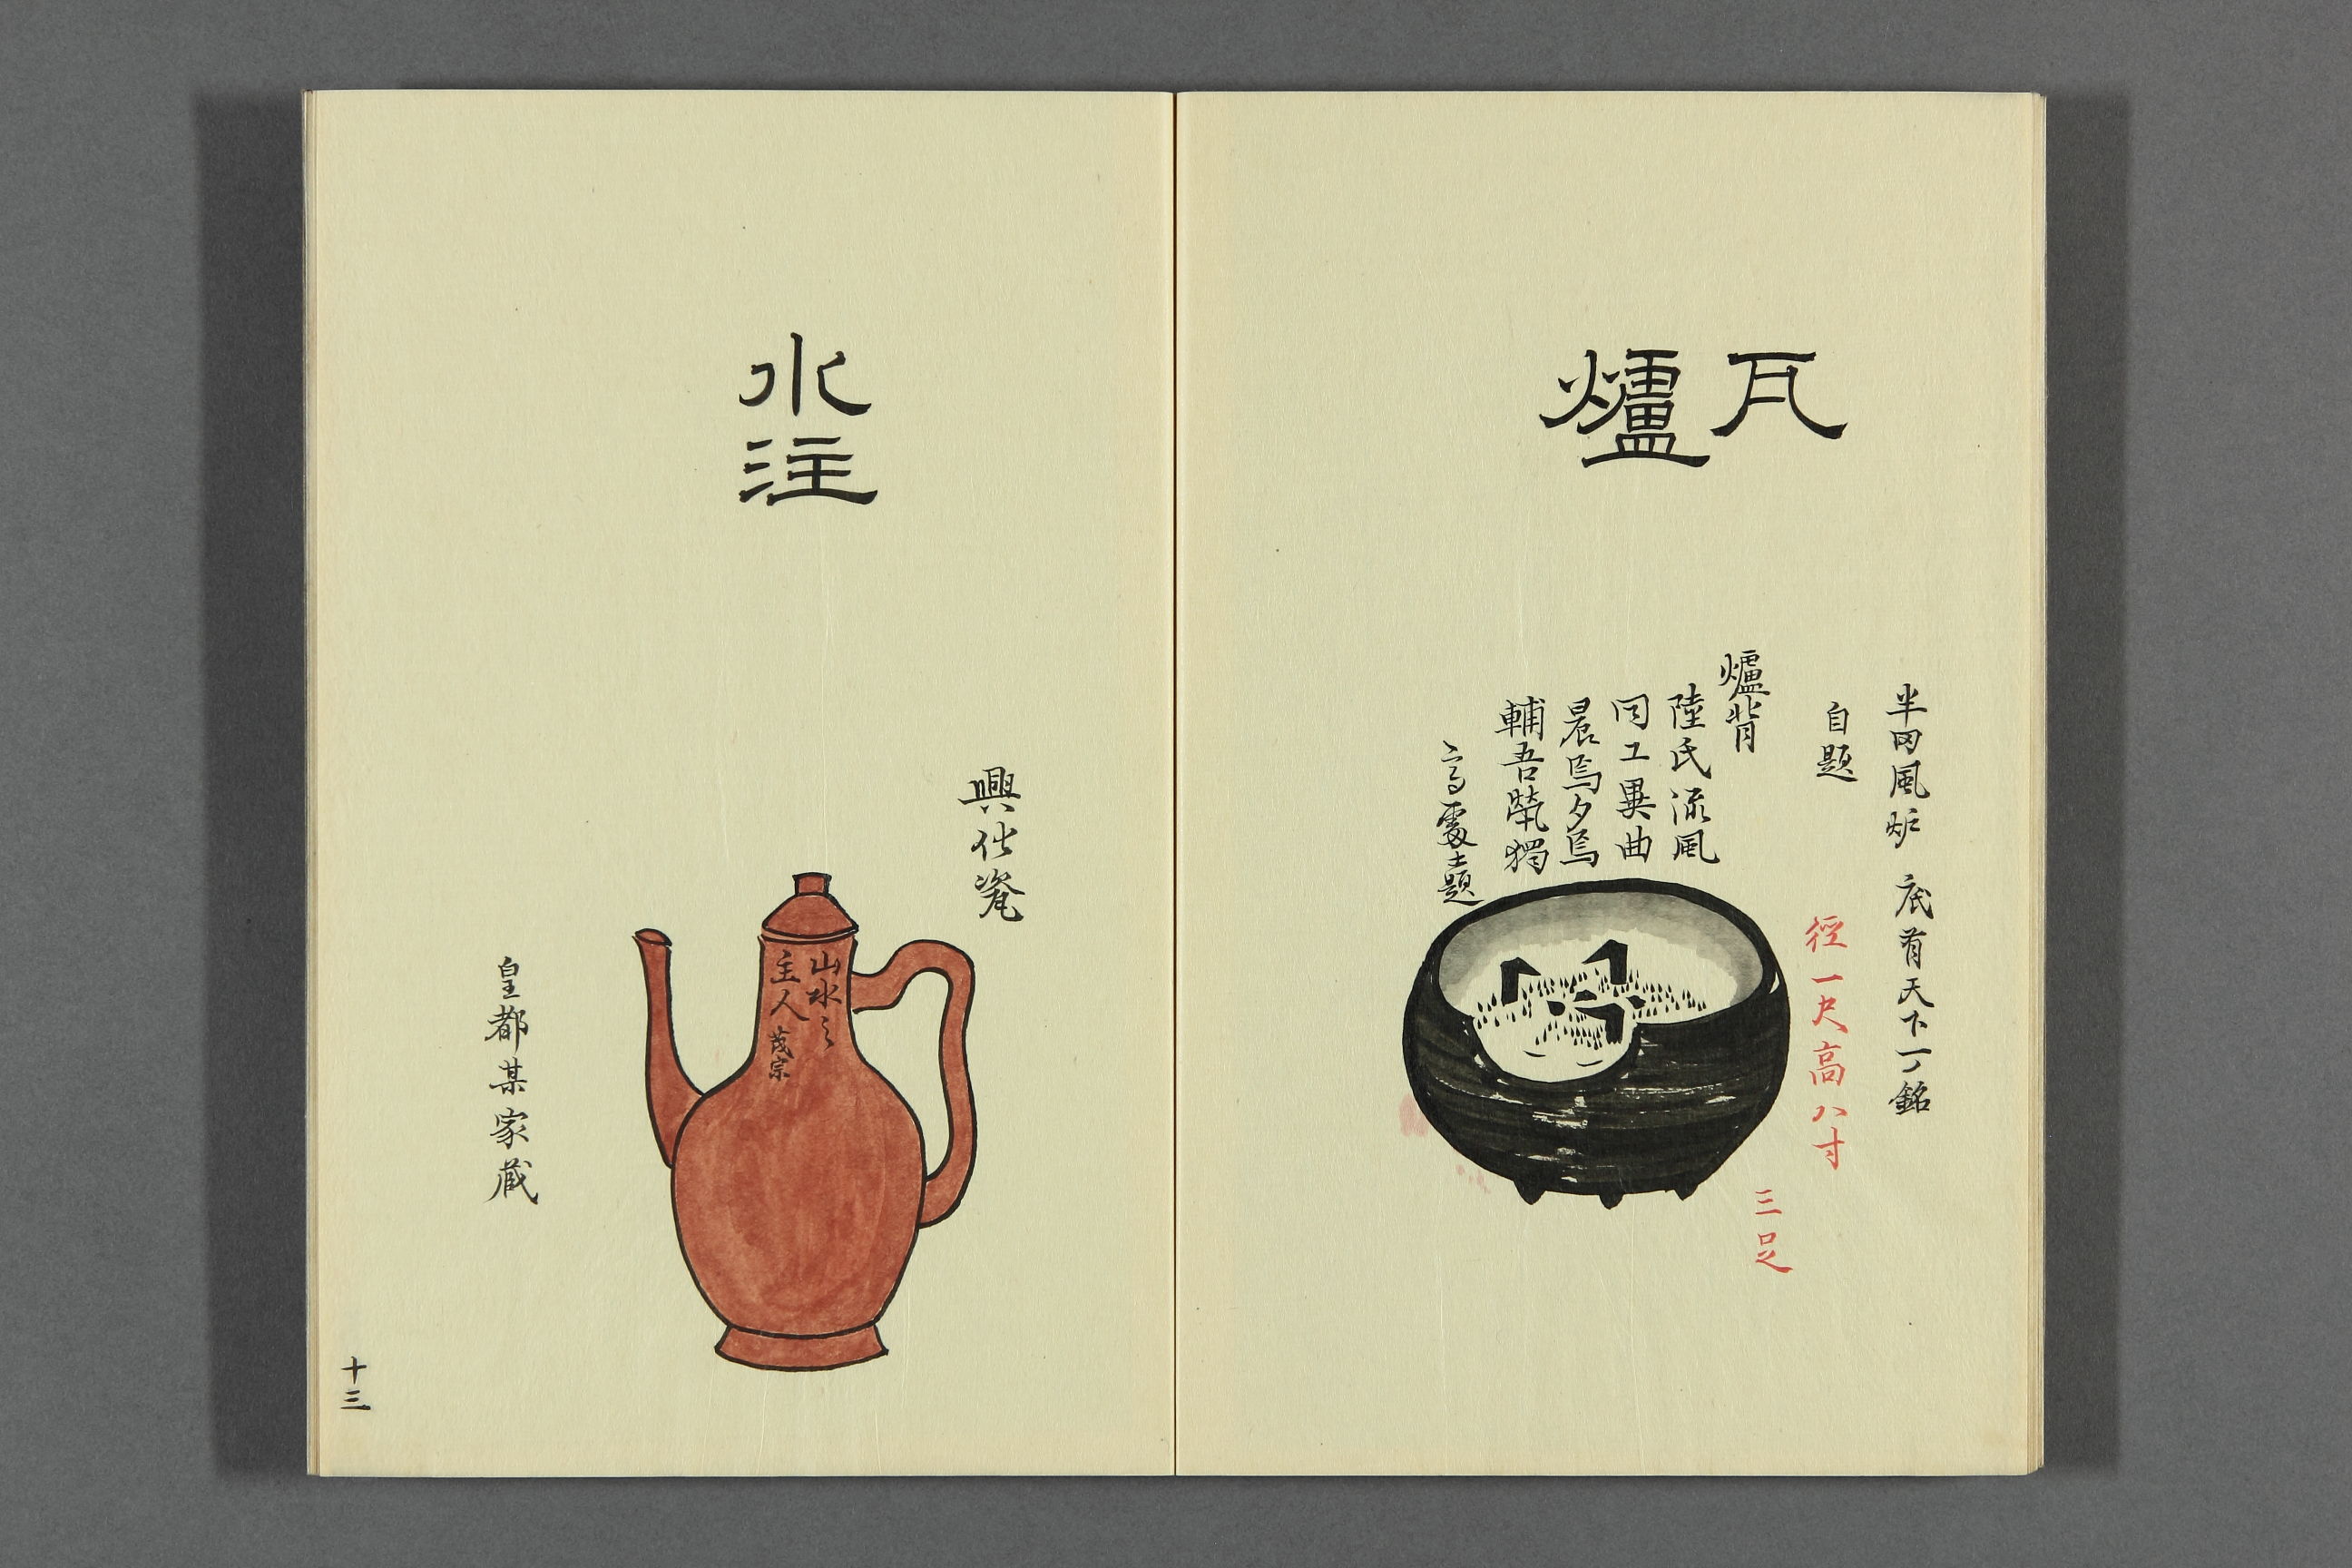 瓦爐
半罔風炉 底有天下一銘
自題
徑一尺高八寸
三足
爐背
陸氏流風
同工異曲
晨焉夕焉
輔吾煢獨
高遊題
水注
興化瓷
山水之
主人 茂宗
皇都某家蔵
十三